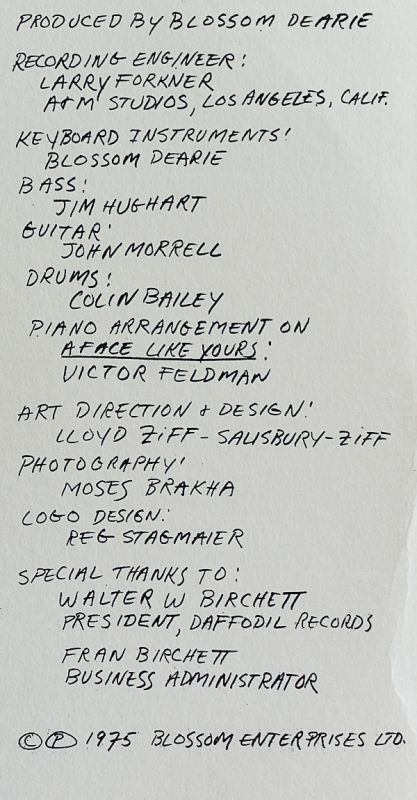 PRODUCED BY BLOSSOM DEARIE
RECORDING ENGINEER:
LARRY FORKNER
A&M STUDIOS, LOS ANGELES, CALIF.
KEYBOARD INSTRUMENTS:
BLOSSOM DEARIE
BASS:
JIM HUGHART
GUITAR:
JOHN MORRELL
DRUMS:
COLIN BAILEY
PIANO ARRANGEMENT ON
A FACE LIKE YOURS:
VICTOR FELDMAN
ART DIRECTION & DESIGN:
LLOYD ZIFF-SALISBURY-ZIFF
PHOTOGRAPHY:
MOSES BRAKHA
LOGO DESIGN:
REG STAGMAIER
SPECIAL THANKS TO:
WALTER W BIRCHETT
PRESIDENT, DAFFODIL RECORDS
FRAN BIRCHETT
BUSINESS ADMINISTRATOR
©℗ 1975 BLOSSOM ENTERPRISES LTD.